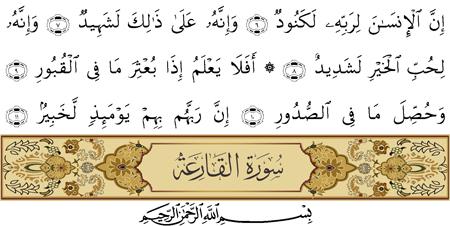 إِنَّ ٱلْإِنسَـٰنَ لِرَبِّهِۦ لَكَنُودٌ ۝٦ وَإِنَّهُۥ عَلَىٰ ذَٰلِكَ لَشَهِيدٌ ۝٧ وَإِنَّهُۥ
لِحُبِّ ٱلْخَيْرِ لَشَدِيدٌ ۝٨ ۞ أَفَلَا يَعْلَمُ إِذَا بُعْثِرَ مَا فِى ٱلْقُبُورِ ۝٩
وَحُصِّلَ مَا فِى ٱلصُّدُورِ ۝١٠ إِنَّ رَبَّهُم بِهِمْ يَوْمَئِذٍ لَّخَبِيرٌۢ ۝١١
سُورَةُ الْقَارِعَةِ
بِسْمِ اللَّهِ الرَّحْمَٰنِ الرَّحِيمِ